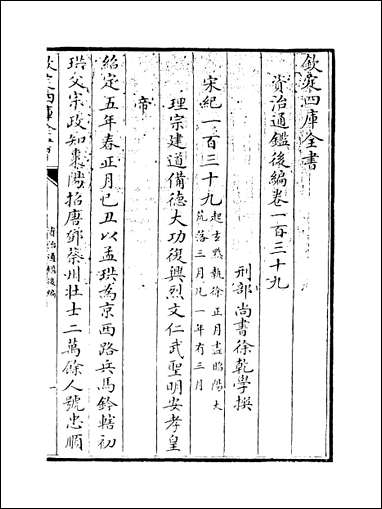 欽定四庫全書
資治通鑑後編卷一百三十九
刑部尚書徐乾學撰
宋紀一百三十九起𤣥黓執徐正月盡昭陽大
荒落三月凡一年有三月
理宗建道備德大功復興烈文仁武聖明安孝皇
帝
紹定五年春正月己丑以孟珙為京西路兵馬鈐轄初
珙父宗政知棗陽招唐鄧蔡州壯士二萬餘人號忠順
欽定四庫全書
資治通鑑後編
一